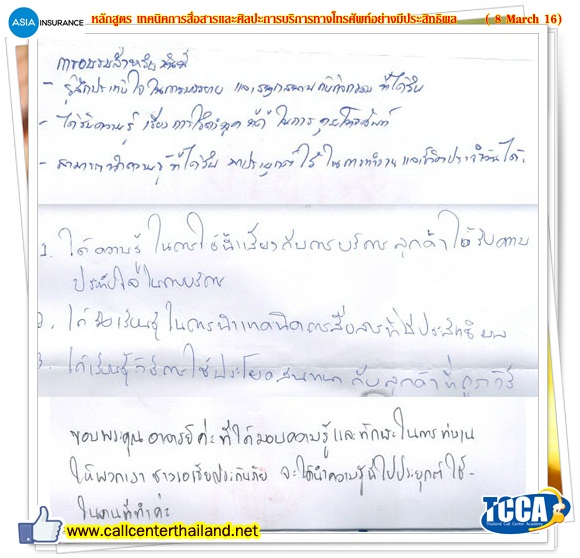 ASIA INSURANCE
หลักสูตร เทคนิคการสื่อสารและศิลปะการบริการทางโทรศัพท์อย่างมีประสิทธิผล ( 8 March 16)
การอบรมสำหรับวันนี้
- รู้สึกประทับใจในการบรรยาย และสนุกสนานกับกิจกรรม ที่ได้รับ
- ได้รับความรู้ เรื่อง การใช้คำพูด ในการ คุยโทรศัพท์
- สามารถนำความรู้ที่ได้รับ มาประยุกต์ใช้ ในการทำงาน และชีวิตประจำวันได้
1. ได้ความรู้ ในการใช้น้ำเสียงกับการบริการ ลูกค้าให้รับความ
ประทับใจในการบริการ
2. ได้ เรียนรู้ ในการนำเทคนิคการสื่อสารที่มีประสิทธิผล
3. ได้เรียนรู้วิธีการใช้ประโยคสนทนา กับ ลูกค้าที่ถูกวิธี
ขอบพระคุณ อาจารย์ค่ะ ที่ได้มอบความรู้ และทักษะในการทำงาน
ให้พวกเรา ชาวเอเชียประกันภัย จะได้นำความรู้นี้ไปประยุกต์ใช้
ในงานที่ทำค่ะ
www.callcenterthailand.net
TCCA
Thailand Call Center Academy